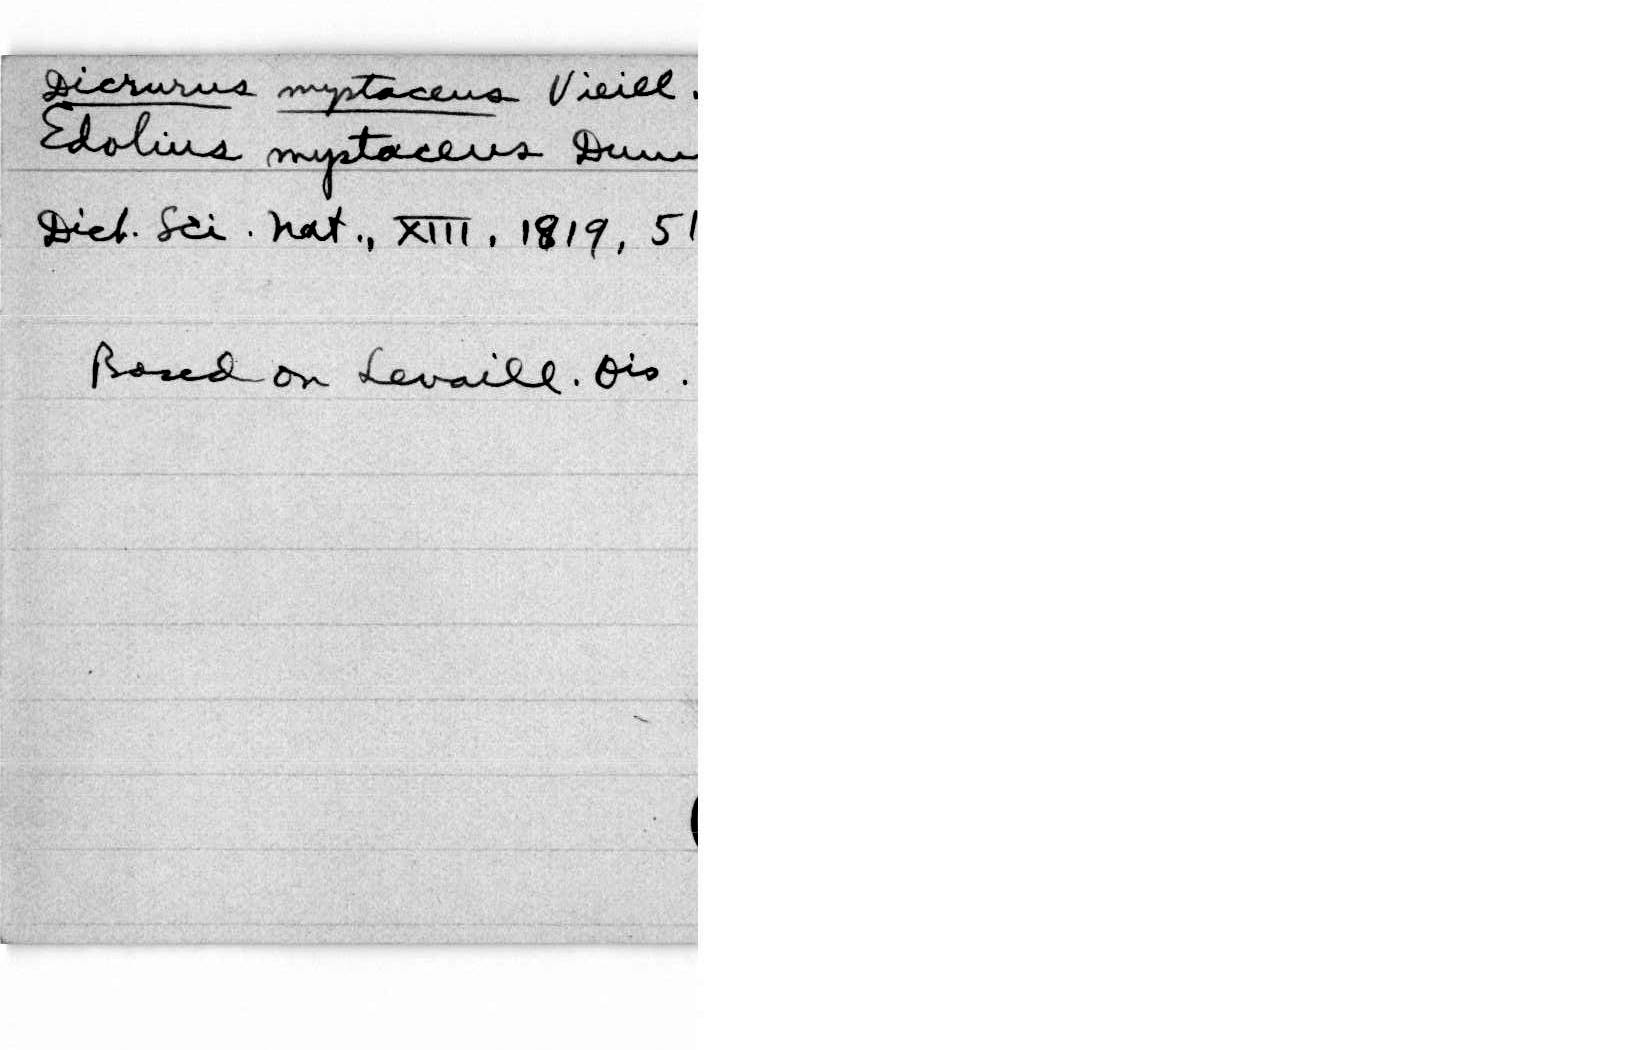 Dicrurus mystaceus Vieill.
Edolius mystaceus Dum
Dict. Sci. Nat., XIII, 1819, 51
Based on Levaill. Ois.